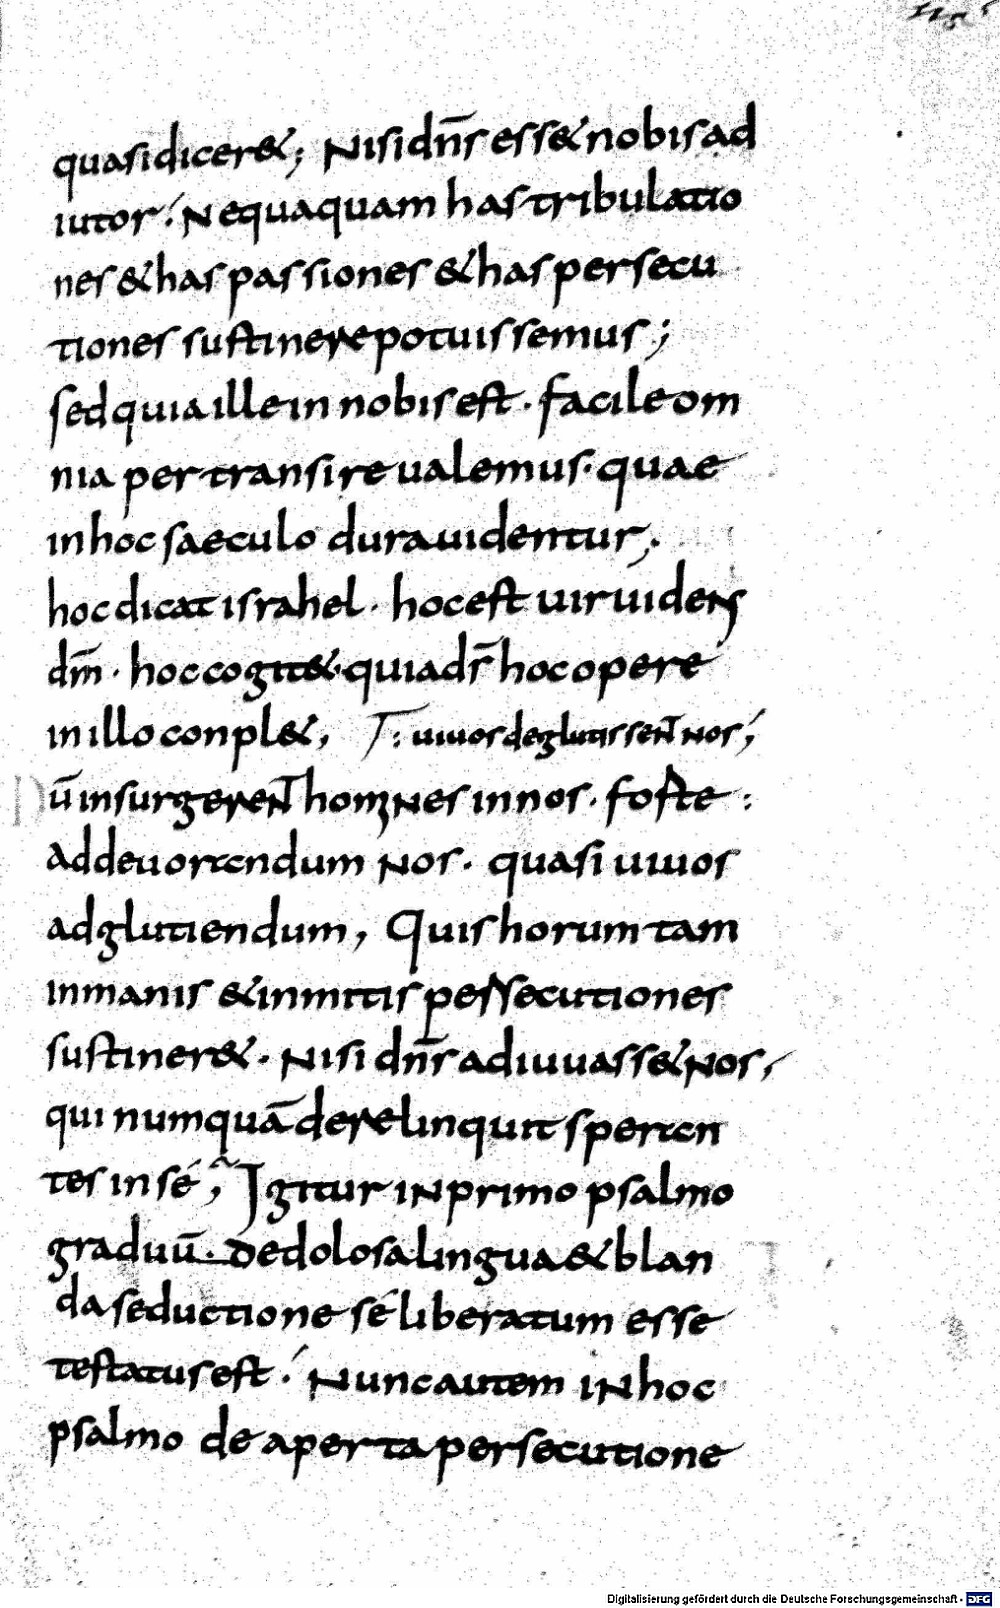 quasi dicer&; Nisi dn̄s ess& nobis ad
iutor; Nequaquam has tribulatio
nes & has passiones & has persecu
tiones sustinere potuissemus;
sed quia ille in nobis est. facile om
nia pertransire ualemus. quae
in hoc saeculo dura uidentur;
hoc dicat israhel. hoc est uir uidens
dm̄. hoc cogit&. quia dr̄ hoc opere
in illo conpl&, uiuos deglutissent nos;
ū insurgerent homines in nos. foste:
ad deuortendum nos. quasi uiuos
ad glutiendum, Quis horum tam
inmanis & inmitis persecutiones
sustiner&. Nisi dn̄s adiuuass& nos,
qui numquā derelinquit sperten
tes in sé; Igitur in primo psalmo
graduū. De dolosa lingua & blan
da seductione sé liberatum esse
testatus est; Nunc autem in hoc
psalmo de aperta persecutione
Digitalisierung gefördert durch die Deutsche Forschungsgemeinschaft - DFG